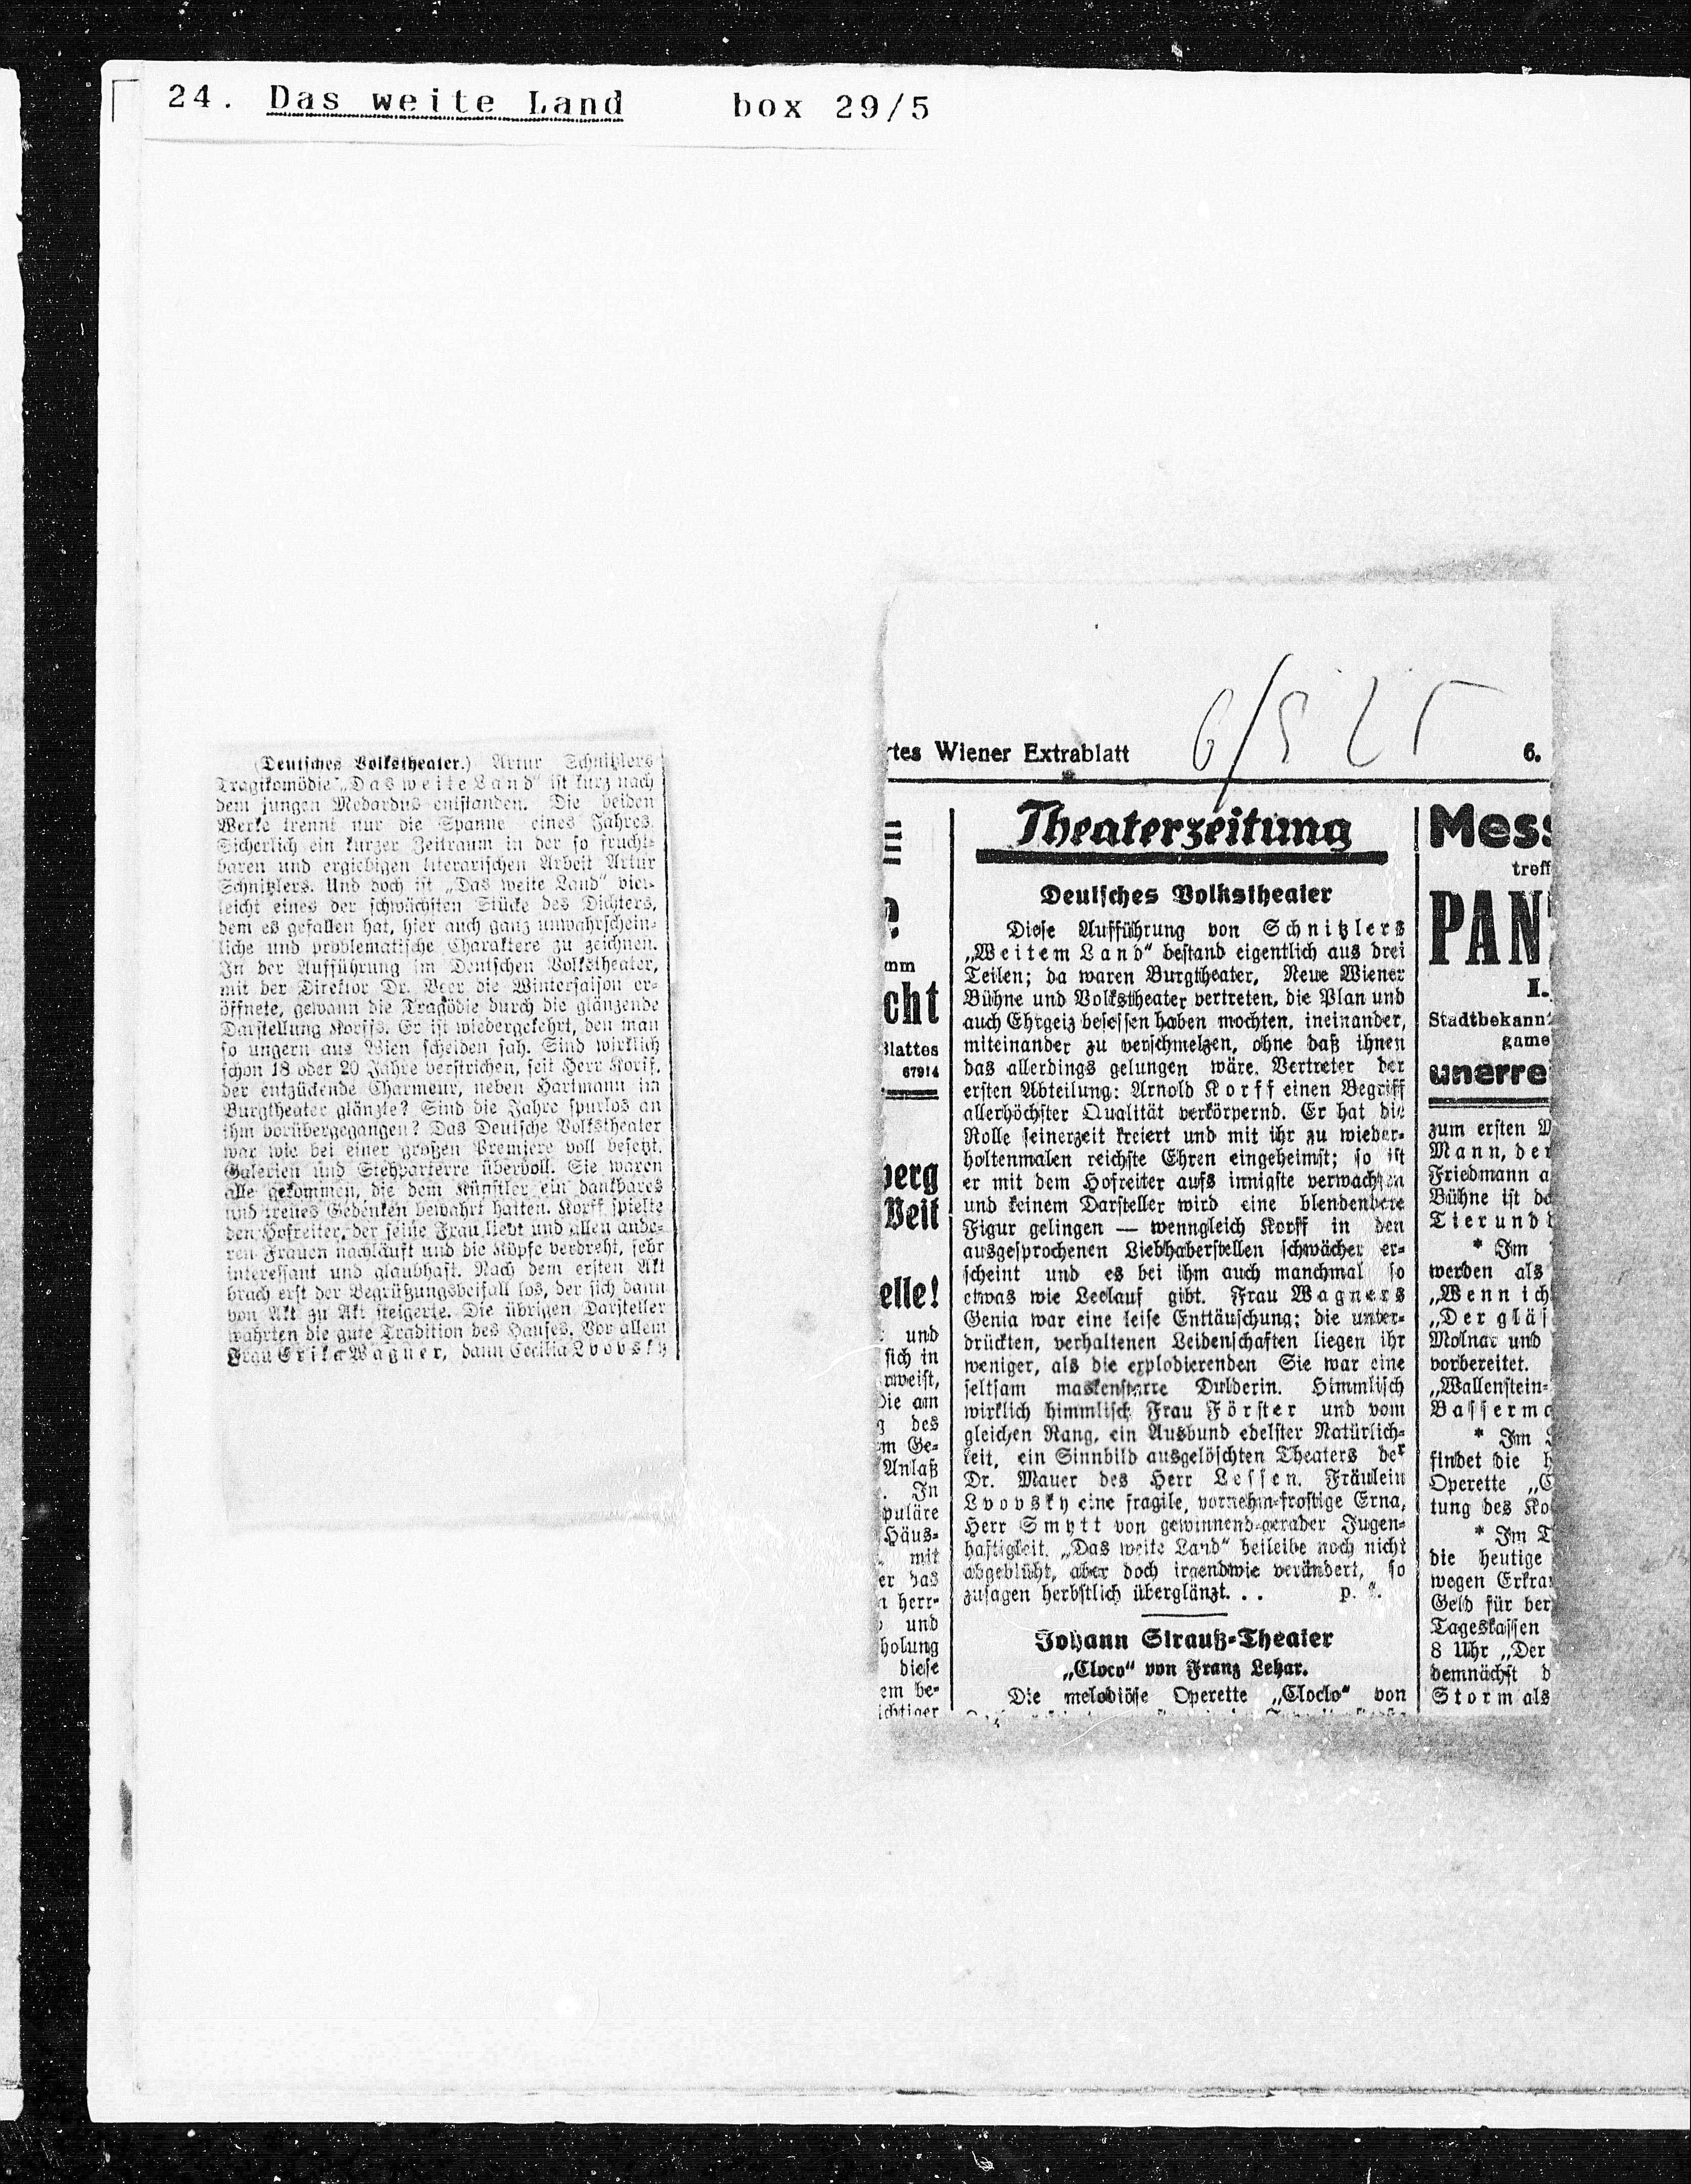 24. Das weite Land box 29/5
(Deutsches Volkstheater.) Artur Schnitzlers
Tragikomödie „Das weite Land" ist kurz nach
dem jungen Medardus entstanden. Die beiden
Werke trennt nur die Spanne eines Jahres.
Sicherlich ein kurzer Zeitraum in der so frucht-
baren und ergiebigen literarischen Arbeit Artur
Schnitzlers. Und doch ist „Das weite Land" viel-
leicht eines der schwächsten Stücke des Dichters,
dem es gefallen hat, hier auch ganz unwahrschein-
liche und problematische Charaktere zu zeichnen.
In der Aufführung im Deutschen Volkstheater,
mit der Direktor Dr. Beer die Wintersaison er-
öffnete, gewann die Tragödie durch die glänzende
Darstellung Korffs. Er ist wiedergekehrt, den man
so ungern aus Wien scheiden sah. Sind wirklich
schon 18 oder 20 Jahre verstrichen, seit Herr Korff,
der entzückende Charmeur, neben Hartmann im
Burgtheater glänzte? Sind die Jahre spurlos an
ihm vorübergegangen? Das Deutsche Volkstheater
war wie bei einer großen Premiere voll besetzt.
Galerien und Stehparterre übervoll. Sie waren
alle gekommen, die dem Künstler ein dankbares
und treues Gedenken bewahrt hatten. Korff spielte
den Hofreiter, der seine Frau liebt und allen ande-
ren Frauen nachläuft und die Köpfe verdreht, sehr
interessant und glaubhaft. Nach dem ersten Akt
brach erst der Begrüßungsbeifall los, der sich dann
von Akt zu Akt steigerte. Die übrigen Darsteller
wahrten die gute Tradition des Hauses. Vor allem
Frau Erika Wagner, dann Cecilia Lvovsky
rtes Wiener Extrablatt
6.
mm
cht
Blattes
67914
berg
Veit
elle!
und
sich in
rweist,
Die am
des
m Ge-
Anlaß
. In
puläre
Häus-
mit
er das
n herr-
und
holung
diese
em be-
ichtiger
Theaterzeitung
Deutsches Volkstheater
Diese Aufführung von Schnitzlers
„Weitem Land" bestand eigentlich aus drei
Teilen; da waren Burgtheater, Neue Wiener
Bühne und Volkstheater vertreten, die Plan und
auch Ehrgeiz besessen haben mochten, ineinander,
miteinander zu verschmelzen, ohne daß ihnen
das allerdings gelungen wäre. Vertreter der
ersten Abteilung: Arnold Korff einen Begriff
allerhöchster Qualität verkörpernd. Er hat die
Rolle seinerzeit kreiert und mit ihr zu wieder-
holtenmalen reichste Ehren eingeheimst; so ist
er mit dem Hofreiter aufs innigste verwachsen
und keinem Darsteller wird eine blendendere
Figur gelingen — wenngleich Korff in den
ausgesprochenen Liebhaberstellen schwächer er-
scheint und es bei ihm auch manchmal so
etwas wie Leelauf gibt. Frau Wagners
Genia war eine leise Enttäuschung; die unter-
drückten, verhaltenen Leidenschaften liegen ihr
weniger, als die explodierenden Sie war eine
seltsam maskenstarre Dulderin. Himmlisch
wirklich himmlisch Frau Förster und vom
gleichen Rang, ein Ausbund edelster Natürlich-
keit, ein Sinnbild ausgelöschten Theaters der
Dr. Mauer des Herr Lessen. Fräulein
Lvovsky eine fragile, vornehm-frostige Erna,
Herr Smytt von gewinnend-gerader Jugen-
haftigkeit. „Das weite Land" beileibe noch nicht
abgeblüht, aber doch irgendwie verändert, so
zusagen herbstlich überglänzt. . . p.
Johann Strauß-Theater
„Cloco" von Franz Lehar.
Die melodiöse Operette „Cloclo" von
Mess
treff
PAN
I.
Stadtbekann
game
unerre
zum ersten
Mann, der
Friedmann a
Bühne ist
Tier und
* Im
werden als
„Wenn ich
„Der gläs
Molnar und
vorbereitet.
„Wallenstein-
Basserma
* Im
findet die
Operette
tung des Ko
* Im T
die heutige
wegen Erkra
Geld für
Tageskassen
8 Uhr „Der
demnächst
Storm als